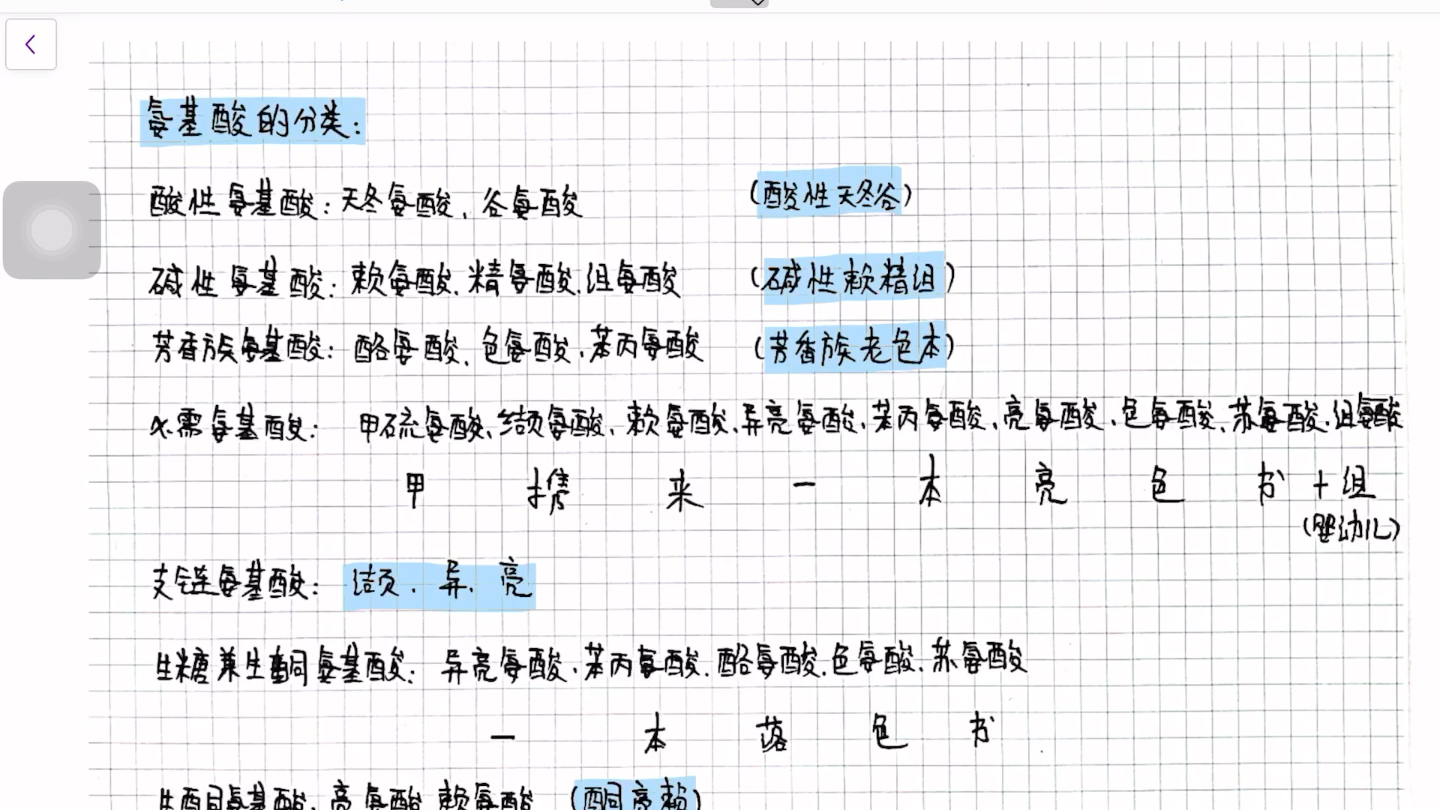 氨基酸的分类：
酸性氨基酸：天冬氨酸、谷氨酸 （酸性天冬谷）
碱性氨基酸：赖氨酸、精氨酸、组氨酸 （碱性赖精组）
芳香族氨基酸：酪氨酸、色氨酸、苯丙氨酸 （芳香族老色本）
必需氨基酸：甲硫氨酸、缬氨酸、赖氨酸、异亮氨酸、苯丙氨酸、亮氨酸、色氨酸、苏氨酸、组氨酸
甲 携 来 一 本 亮 色 书 + 组
（婴幼儿）
支链氨基酸：缬、异、亮
生糖兼生酮氨基酸：异亮氨酸、苯丙氨酸、酪氨酸、色氨酸、苏氨酸
一 本 落 色 书
生酮氨基酸：亮氨酸、赖氨酸 （酮亮赖）